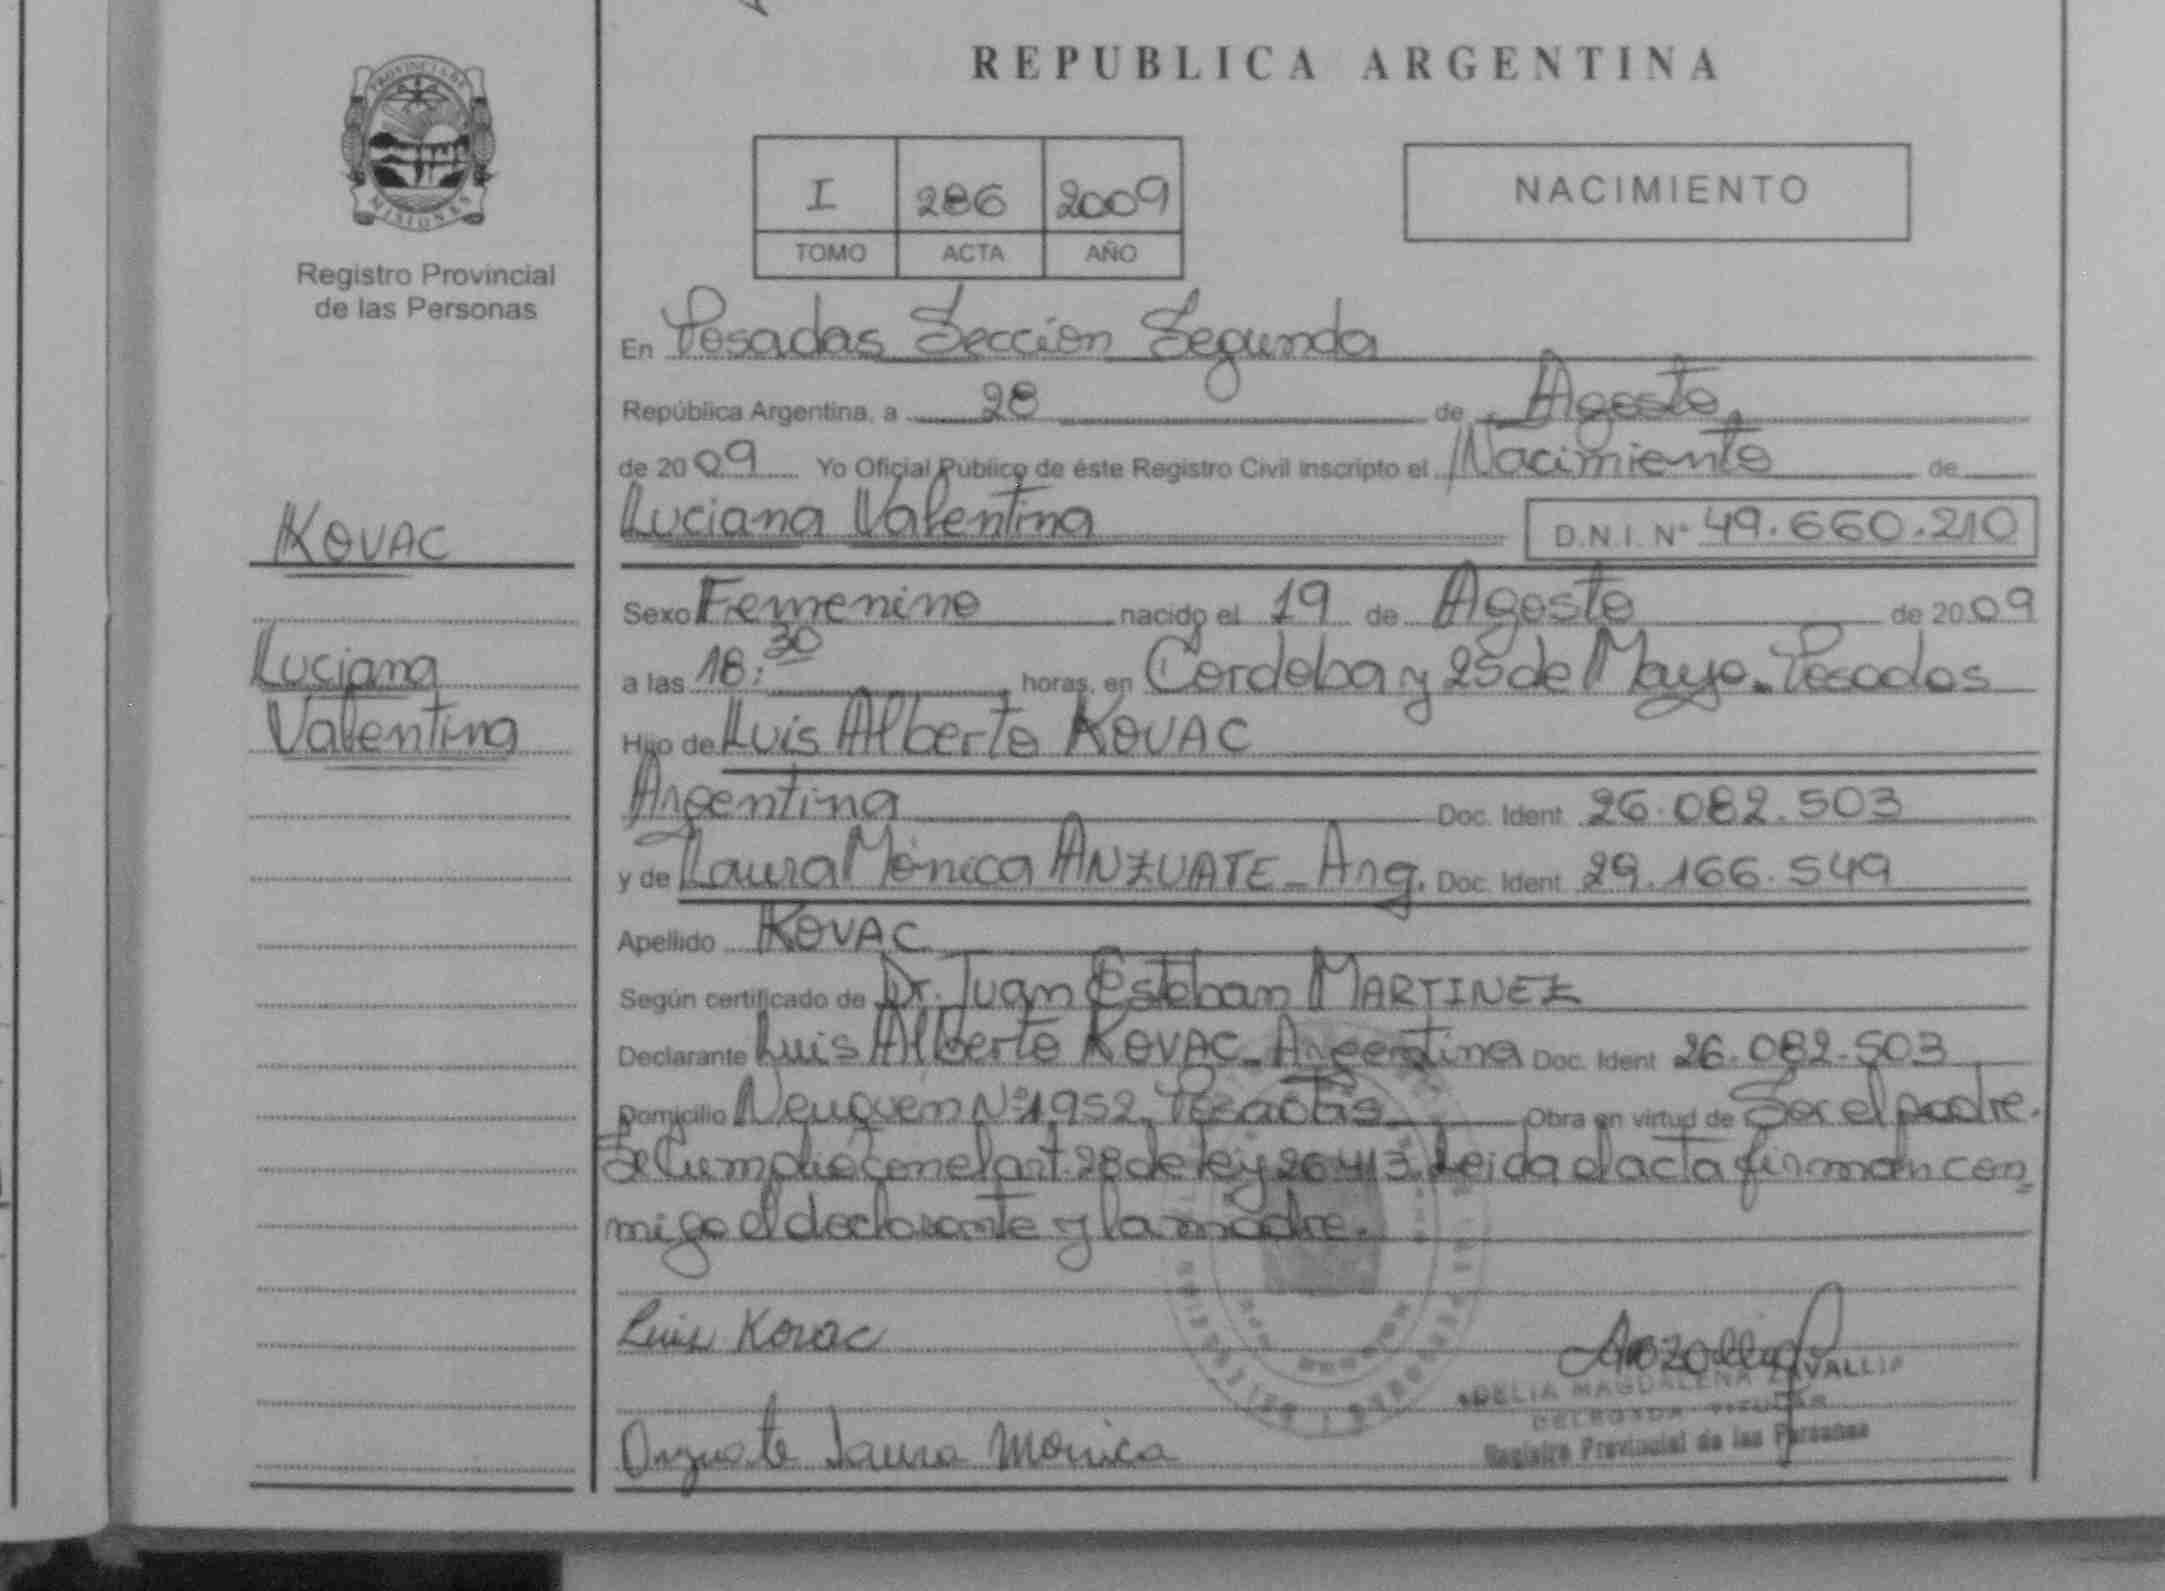 PROVINCIA DE
MISIONES
Registro Provincial
de las Personas
KOVAC
Luciana
Valentina
REPUBLICA ARGENTINA
I 286 2009
TOMO ACTA AÑO
NACIMIENTO
En Posadas Sección Segunda
República Argentina, a 28 de Agosto
de 2009 Yo Oficial Público de éste Registro Civil inscripto el Nacimiento de
Luciana Valentina D.N.I. Nº 49.660.210
Sexo Femenino nacido el 19 de Agosto de 2009
a las 18:30 horas, en Cordoba y 25 de Mayo - Posadas
Hijo de Luis Alberto KOVAC
Argentina Doc. Ident 26.082.503
y de Laura Mónica ANZUATE - Arg. Doc. Ident 29.166.549
Apellido KOVAC
Según certificado de Dr. Juan Esteban MARTINEZ
Declarante Luis Alberto KOVAC - Argentina Doc. Ident 26.082.503
Domicilio Neuquem Nº 1952, Posadas Obra en virtud de Ser el padre.
Se Cumplio con el art. 28 de ley 26413. Leida el acta firman con=
migo el declarante y la madre.
Luis Kovac
Anzuate Laura Monica
ADELIA MAGDALENA ZAVALLIA
DELEGADA TITULAR
Registro Provincial de las Personas